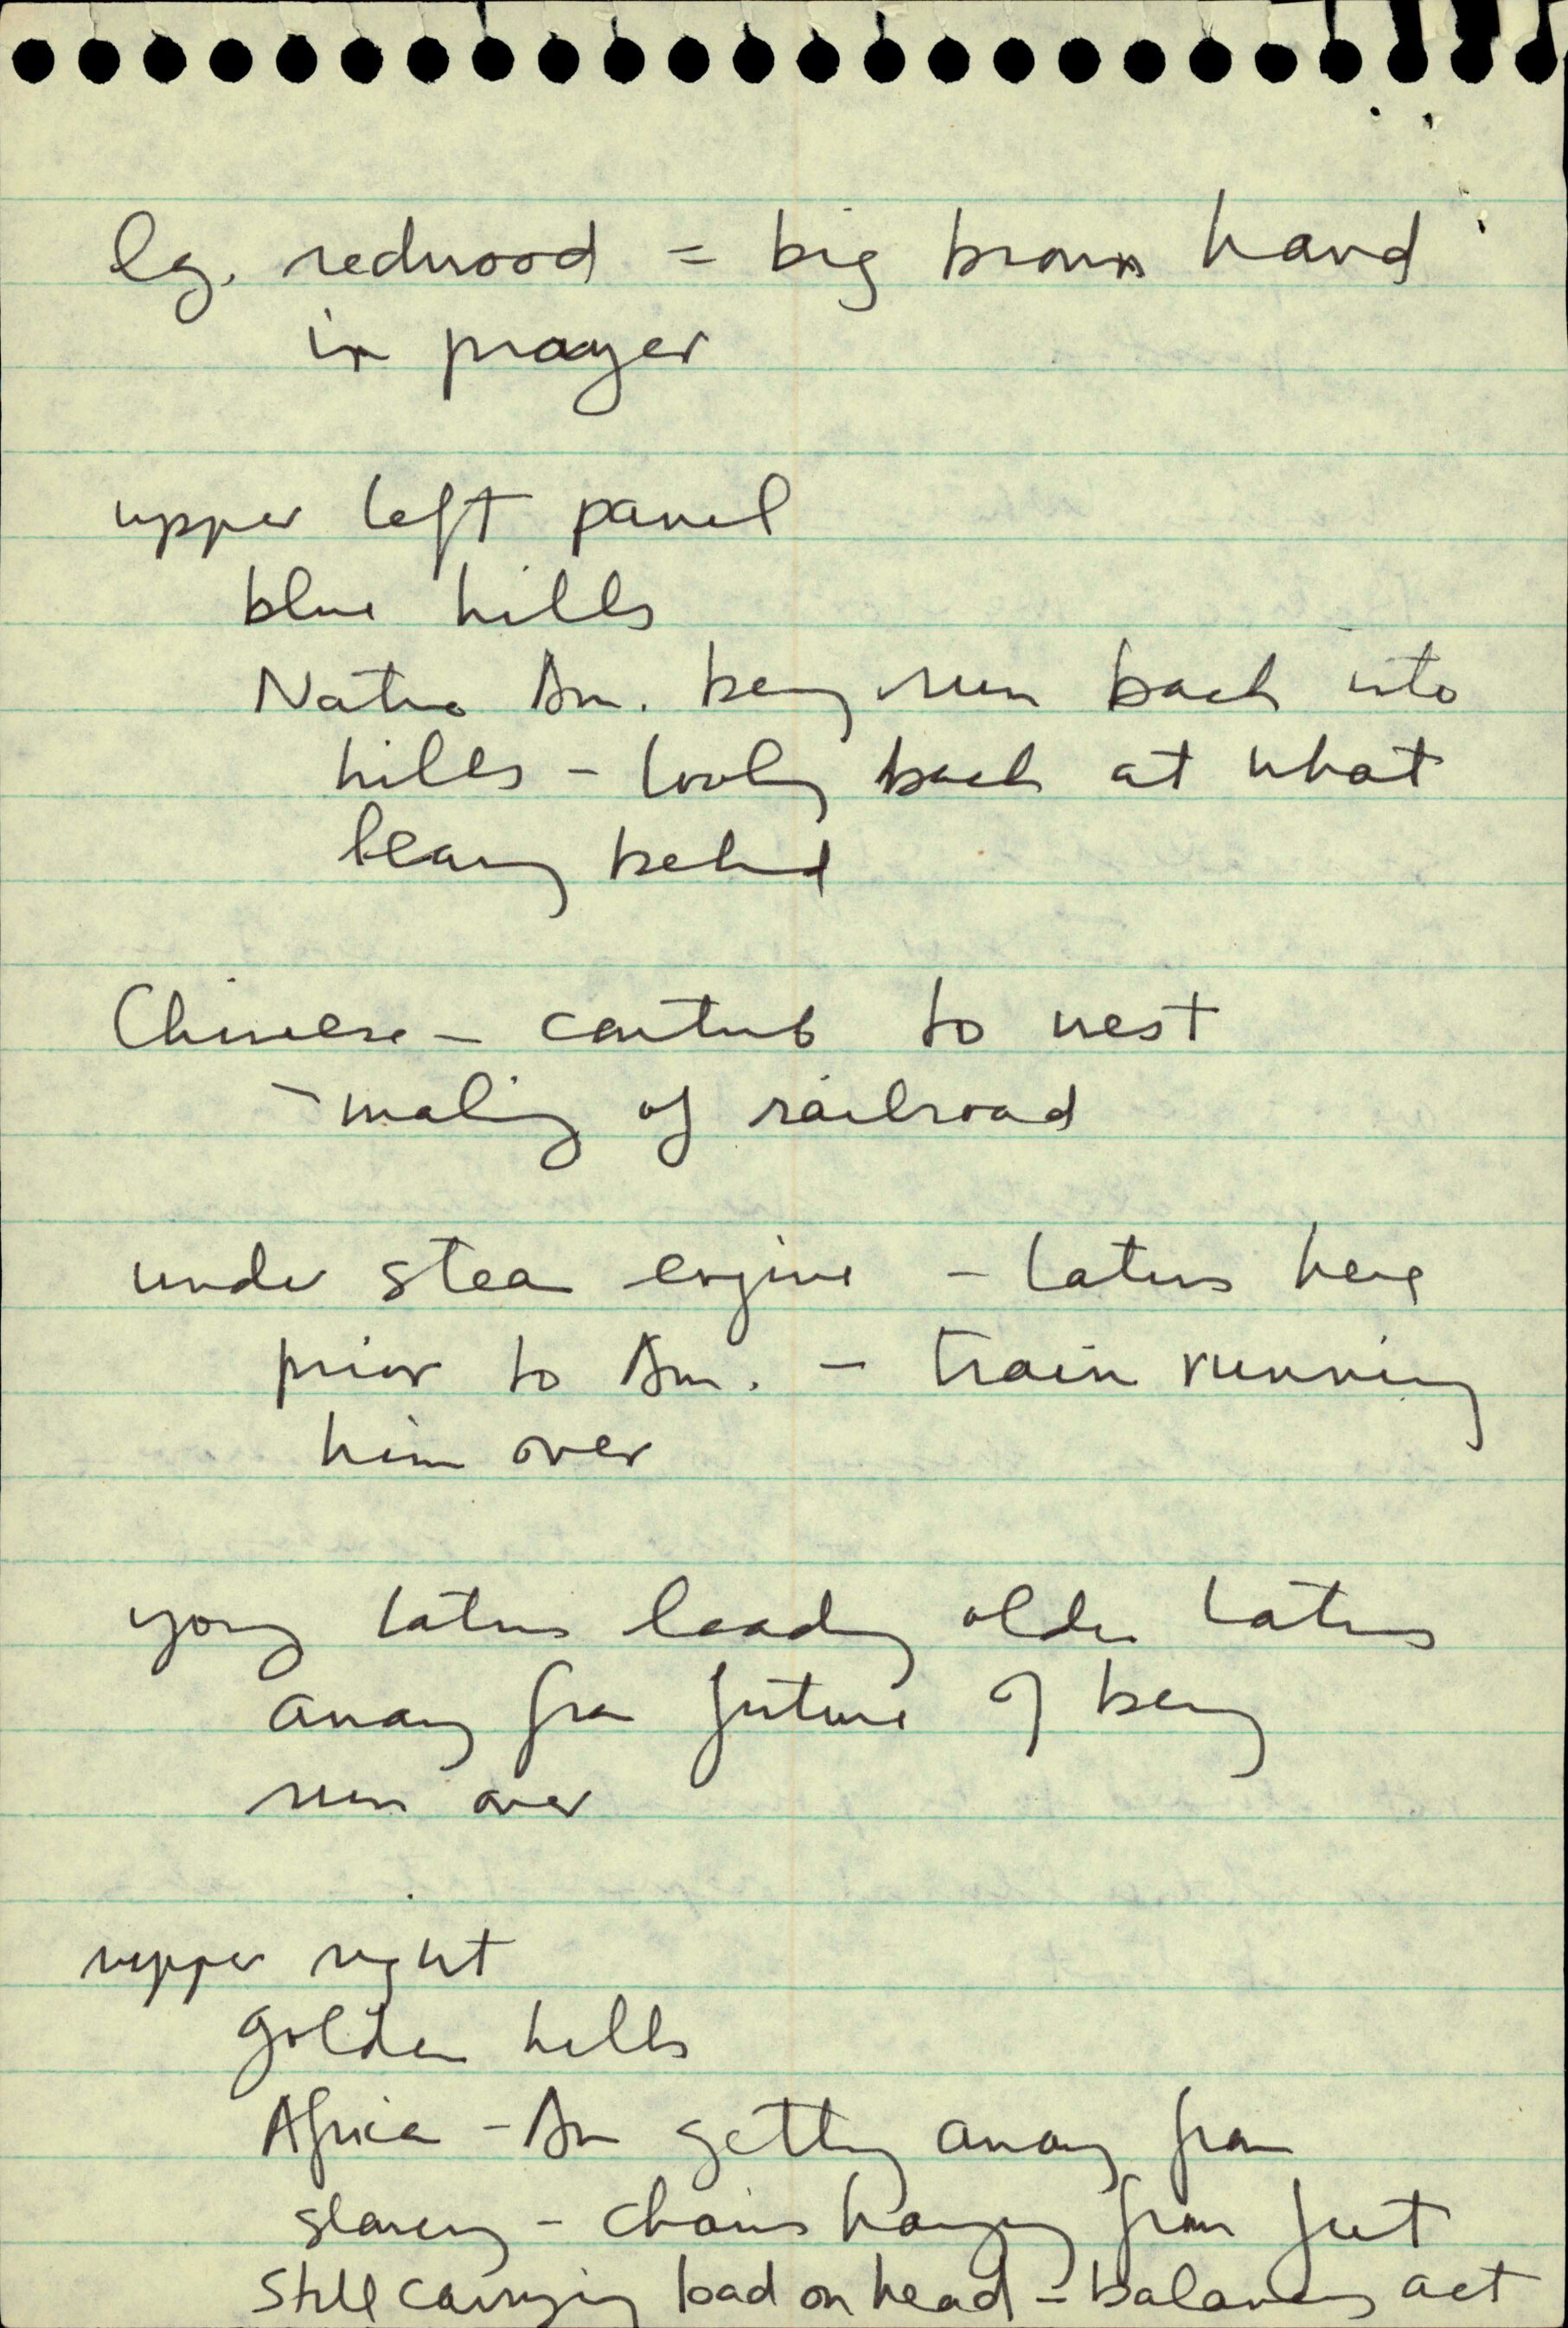 lg. redwood = big brown hand
in prayer
upper left panel
blue hills
Native Am. being run back into
hills - looking back at what
leaving behind
Chinese - contrib to west
- making of railroad
under steam engine - Latinos here
prior to Am. - train running
him over
young Latinos leading older Latinos
away from future of being
run over
upper right
golden hills
African - Am getting away from
slavery - chains hanging from feet
still carrying load on head - balancing act